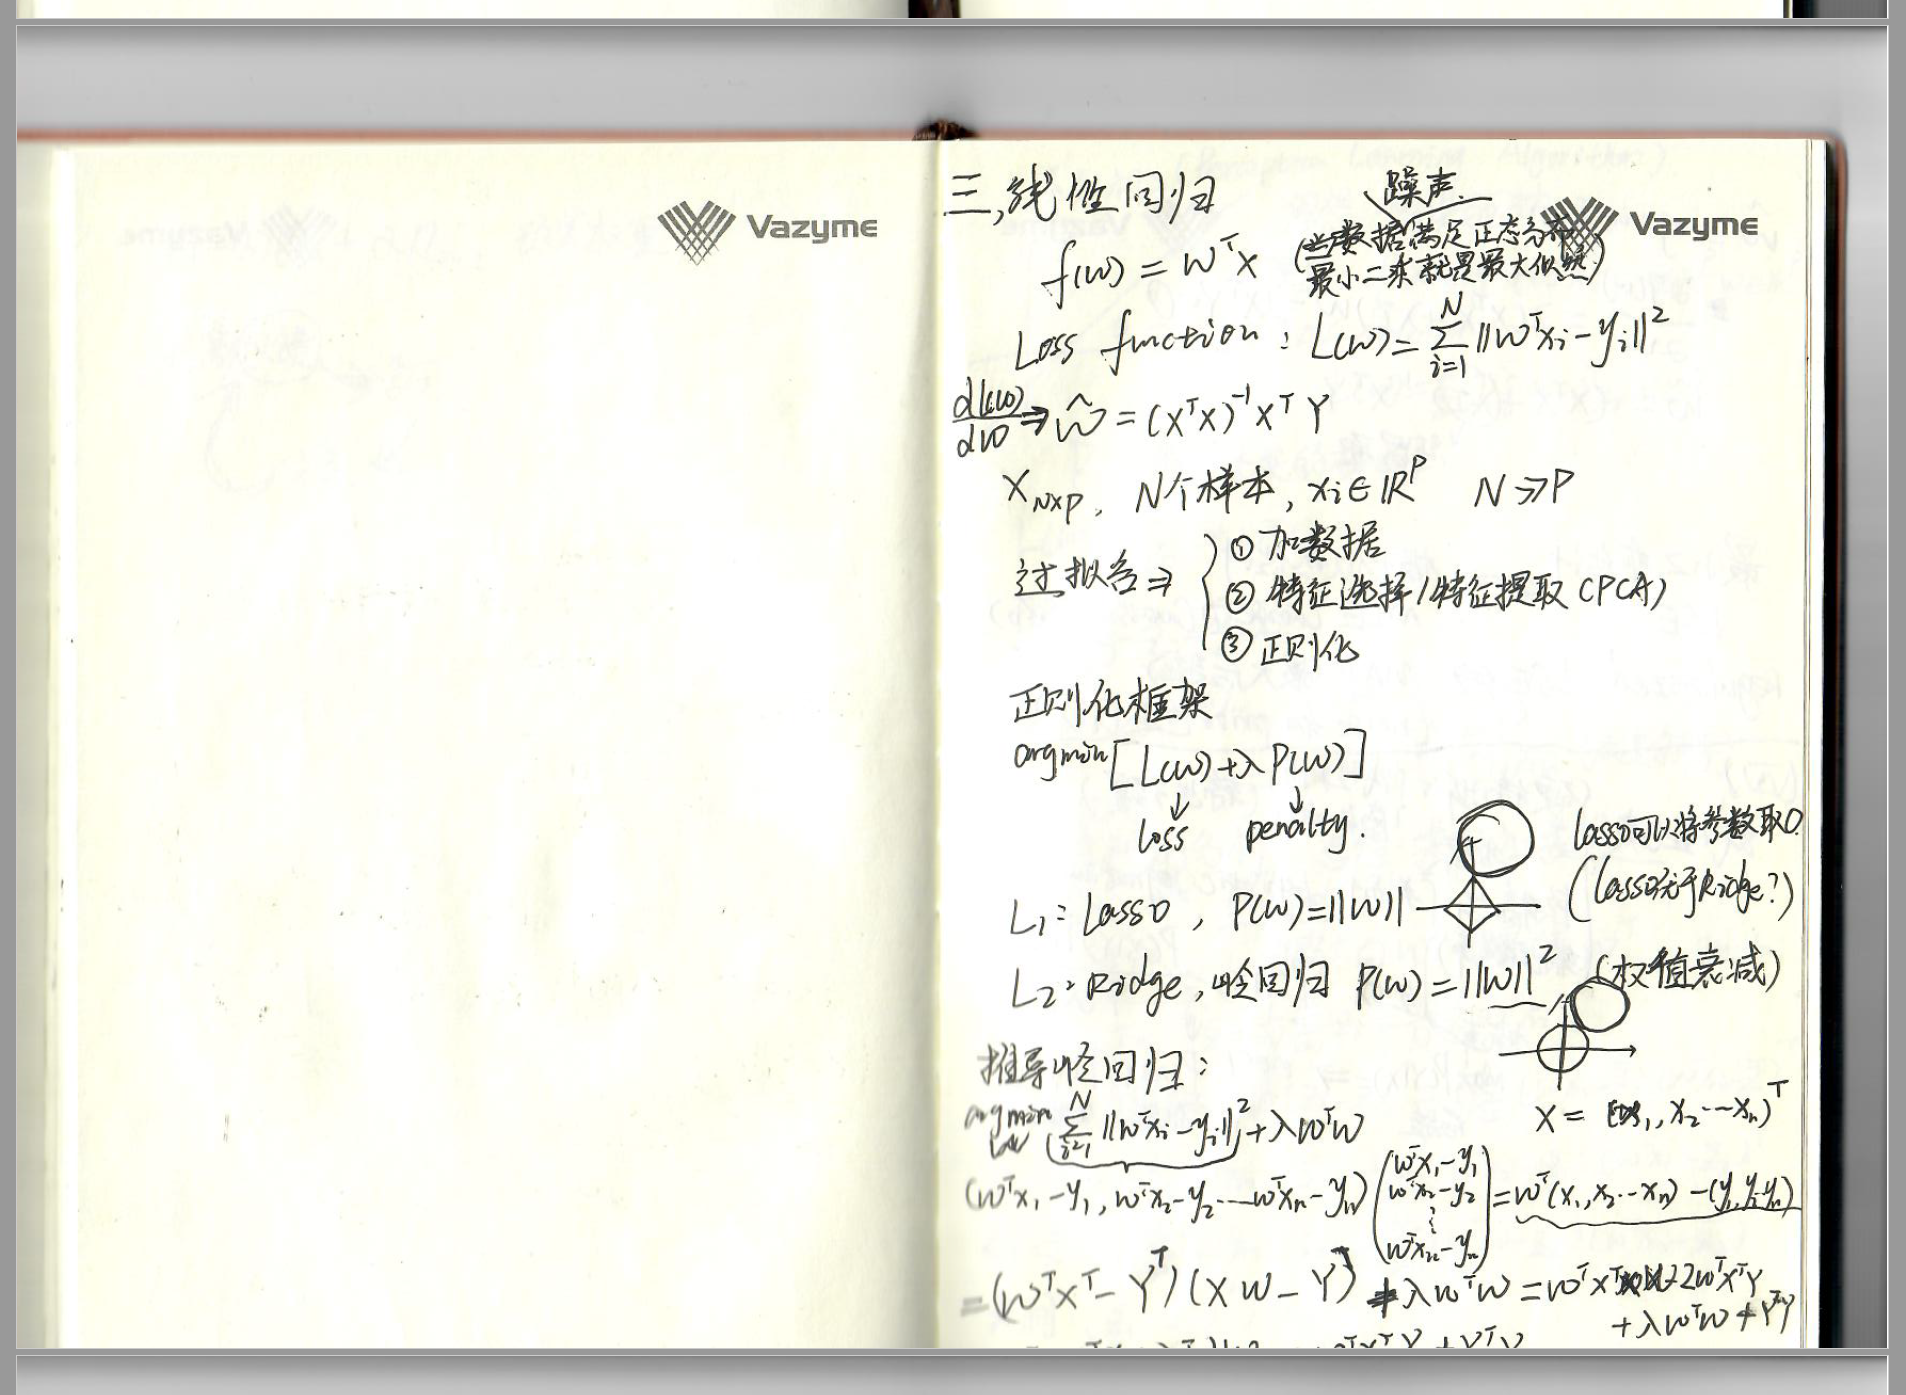 Vazyme
三,线性回归
噪声.
Vazyme
f(w) = wᵀx (当数据满足正态分布
最小二乘就是最大似然)
Loss function : L(w) = Σᵢ₌₁ᴺ ||wᵀxᵢ - yᵢ||²
dL(w)/dw ⇒ ŵ = (XᵀX)⁻¹XᵀY
X_{N×P}, N个样本, xᵢ∈ℝᴾ N≫P
过拟合⇒
① 加数据
② 特征选择/特征提取 (PCA)
③ 正则化
正则化框架
argmin[L(w)+λP(w)]
↓ ↓
loss penalty.
Lasso可以将参数取0.
(Lasso优于Ridge?)
L₁: Lasso, P(w)=||w||
L₂: Ridge, 岭回归 P(w)=||w||² (权值衰减)
推导岭回归:
argmin Σᵢ₌₁ᴺ ||wᵀxᵢ-yᵢ||² + λwᵀw
X = (x₁, x₂…xₙ)ᵀ
(wᵀx₁-y₁, wᵀx₂-y₂…wᵀxₙ-yₙ) (wᵀx₁-y₁ wᵀx₂-y₂ ⋮ wᵀxₙ-yₙ) = wᵀ(x₁,x₂…xₙ) - (y₁,y₂…yₙ)
= (wᵀXᵀ - Yᵀ)(Xw - Y) + λwᵀw = wᵀXᵀXw - 2wᵀXᵀY
+ λwᵀw + YᵀY